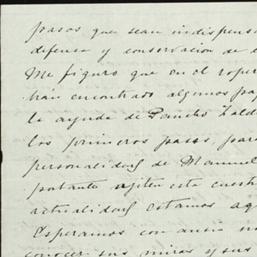 pasos que sean indispensa
defensa y conservacion de e
Me figuro que en el roper
han encontrado algunos pap
la ayuda de Pancho Zald
los primeros pasos, par
personalidad de Manuel
portanto agiten esta cuest
actualidad estamos ag
Esperamos con ansia no
conocer sus miras y sus